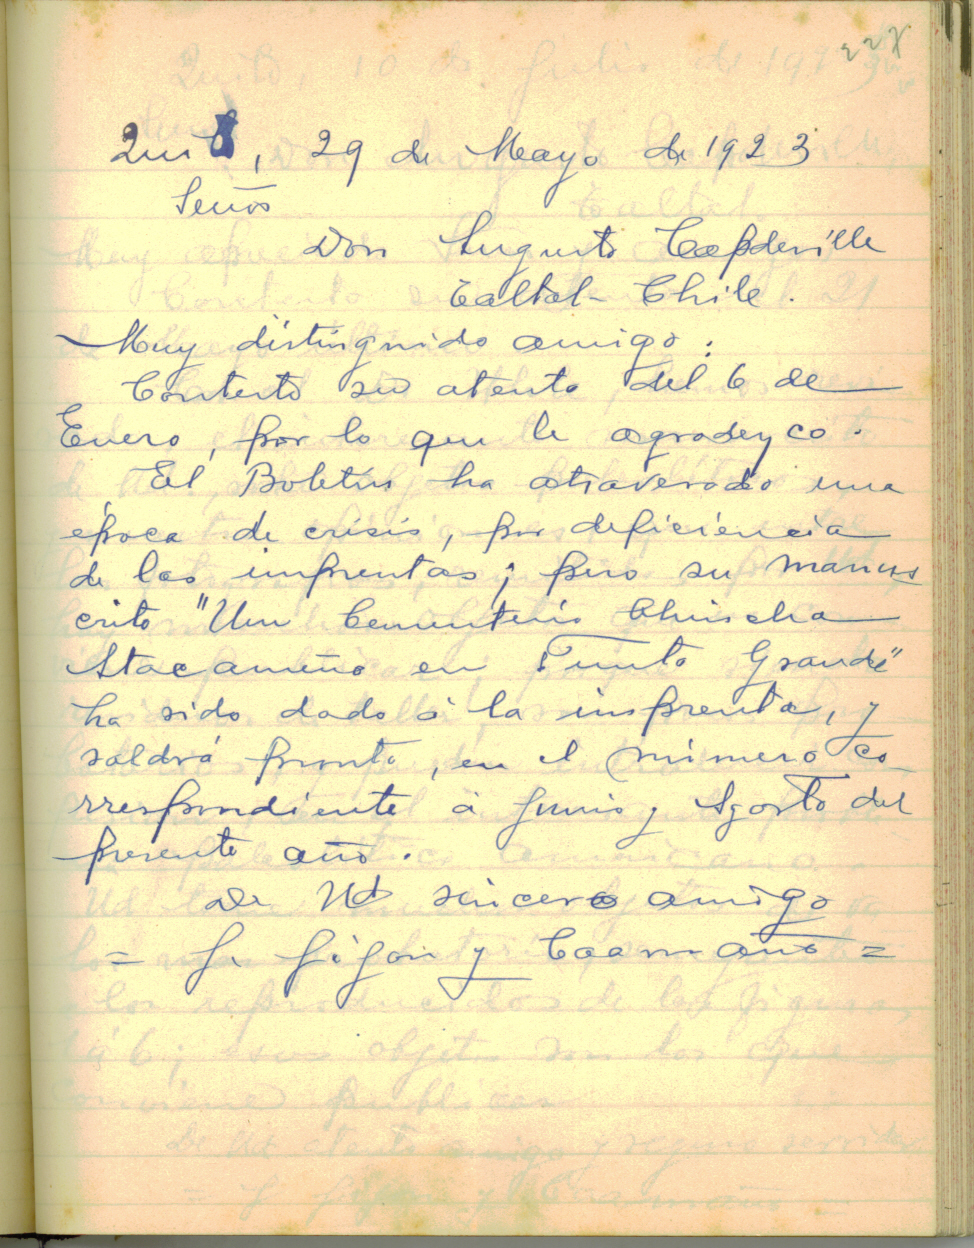 227
Quito, 29 de Mayo de 1923
Señor
Don Augusto Capdeville
Taltal - Chile.
Muy distinguido amigo:
Contesto su atenta del 6 de
Enero, por lo que le agradezco.
El Boletín ha atravesado una
época de crisis, por deficiencia
de las imprentas; pero su manus
crito "Un Cementerio Chincha
Atacameño en Punta Grande"
ha sido dado á la imprenta, y
saldrá pronto, en el número co-
rrespondiente á Junio y Agosto del
presente año.
De Ud sincero amigo
= J. Gijón y Caamaño =